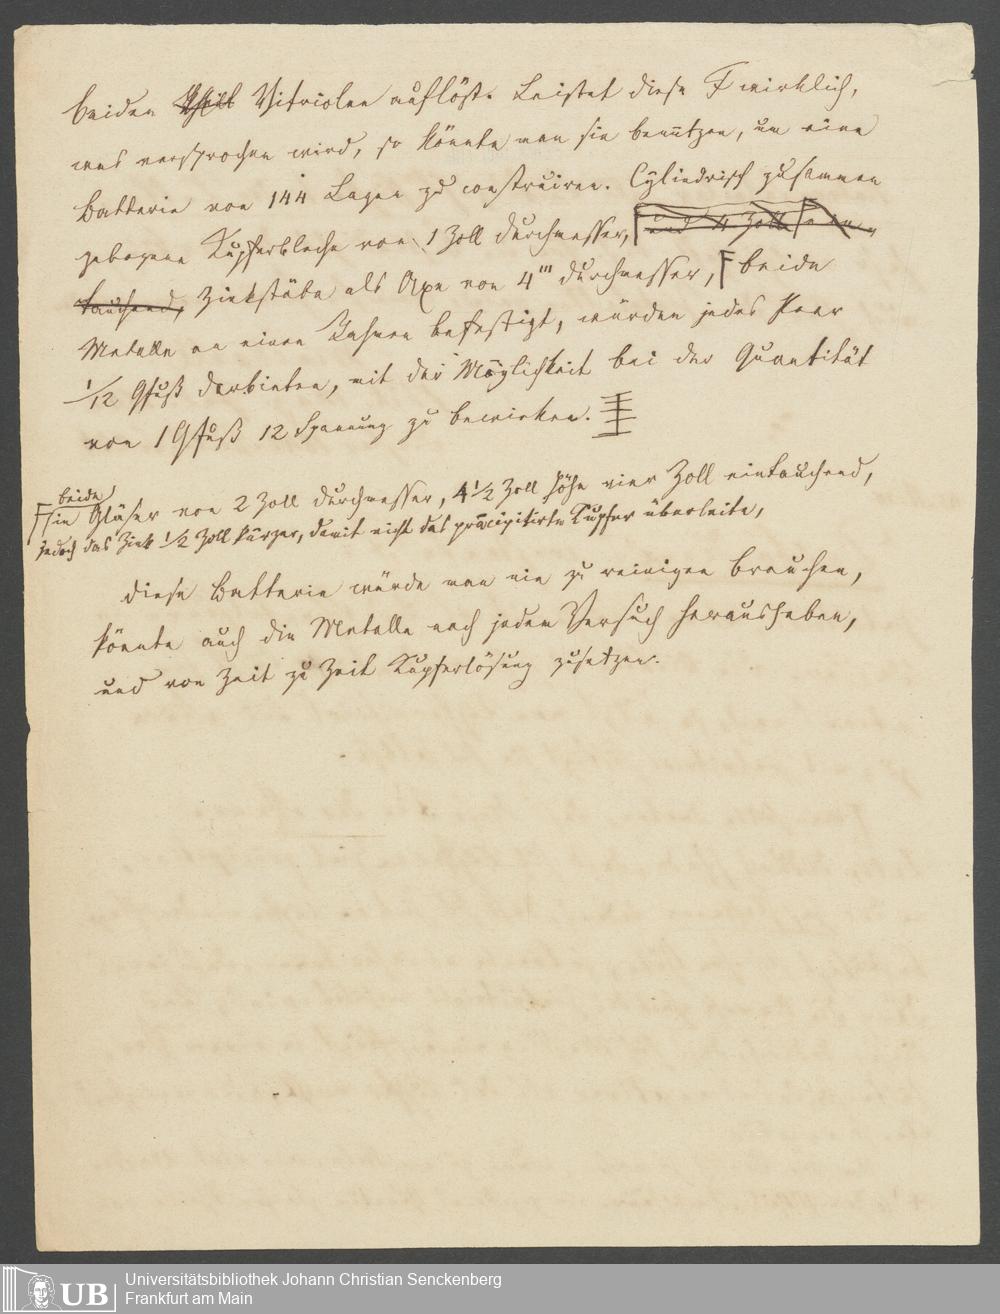 beiden Theil Vitriolen auflöst. Leistet diese F wirklich,
was versprochen wird, so könnte man sie benutzen, um eine
Batterie von 144 Lagen zu construiren. Cylindrisch zusammen
gebogene Kupferbleche von 1 Zoll Durchmesser, und 4 Zoll
tauchend, Zinkstäbe als Axe von 4''' Durchmesser, F beide
Metalle an einen Rahmen befestigt, würden jedes Paar
1/12 □fuß darbieten, mit der Möglichkeit bei der Quantität
von 1 □fuß 12 Spannung zu bewirken.
beide
F in Gläser von 2 Zoll Durchmesser, 4 1/2 Zoll Höhe vier Zoll eintauchend,
jedoch das Zink 1/2 Zoll kürzer, damit nicht das präcipitirte Kupfer überleite,
diese Batterie würde man nie zu reinigen brauchen,
könnte auch die Metalle nach jedem Versuch herausheben,
und von Zeit zu Zeit Kupferlösung zusetzen.
UB
Universitätsbibliothek Johann Christian Senckenberg
Frankfurt am Main